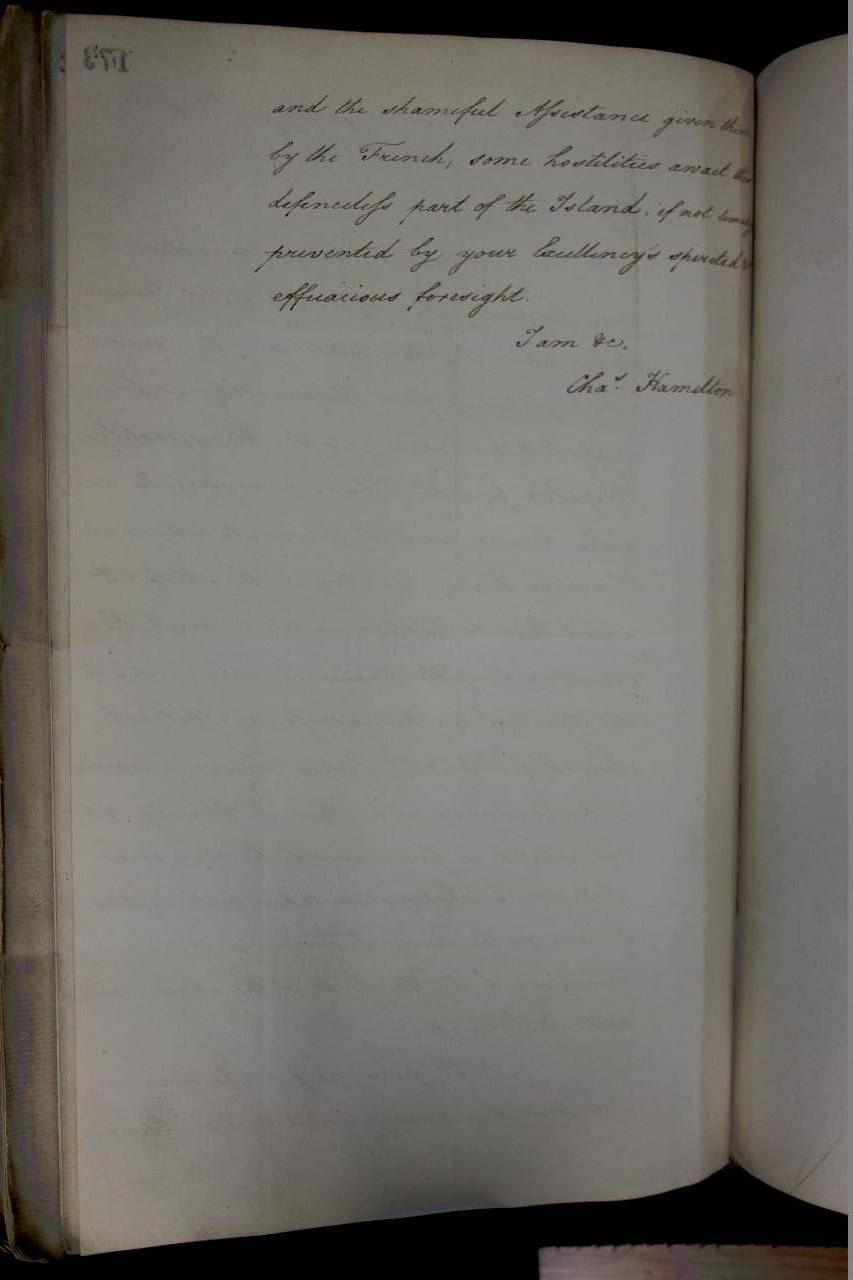 and the shameful Assistance given them
by the French, some hostilities await this
defenceless part of the Island, if not timely
prevented by your Excellency's spirited &
efficacious foresight.
I am &c.
Chas. Hamilton